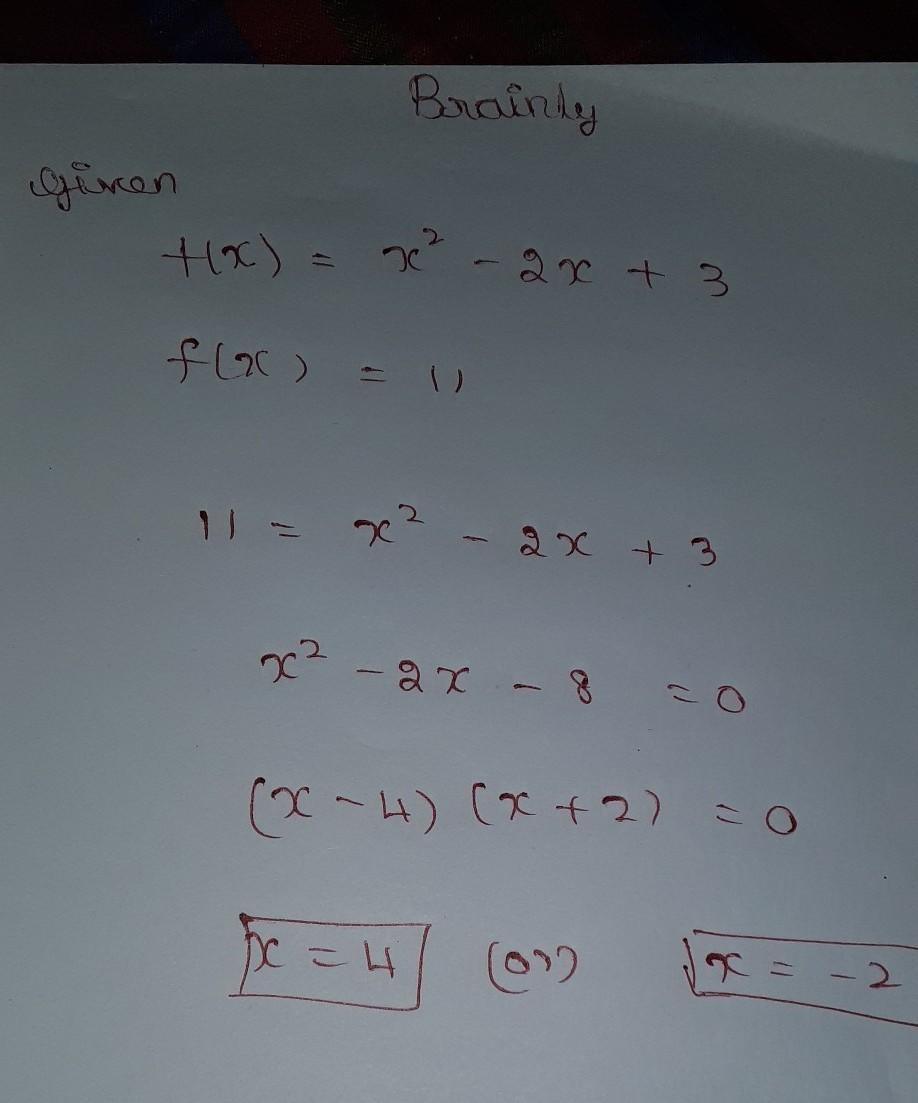 Brainly
Given
f(x) = x² - 2x + 3
f(x) = 11
11 = x² - 2x + 3
x² - 2x - 8 = 0
(x - 4) (x + 2) = 0
x = 4 (or) x = -2